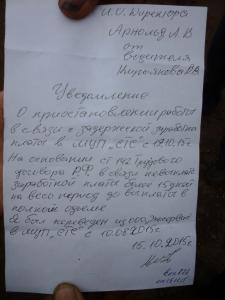 И.О. Директора
Арнольд Л.В
от
водителя
Кирьянова В.В.
Уведомление
О приостановлении работы
в связи с задержкой заработной
платы в МУП "СТС" с 19.10.15г.
На основании ст 142 Трудового
договора Р.Ф. в связи невыплаты
заработной платы более 15 дней
на весь период до выплаты в
полном объеме
Я был переведен из ООО
в МУП "СТС" с 10.08.2015г.
15.10.2015г